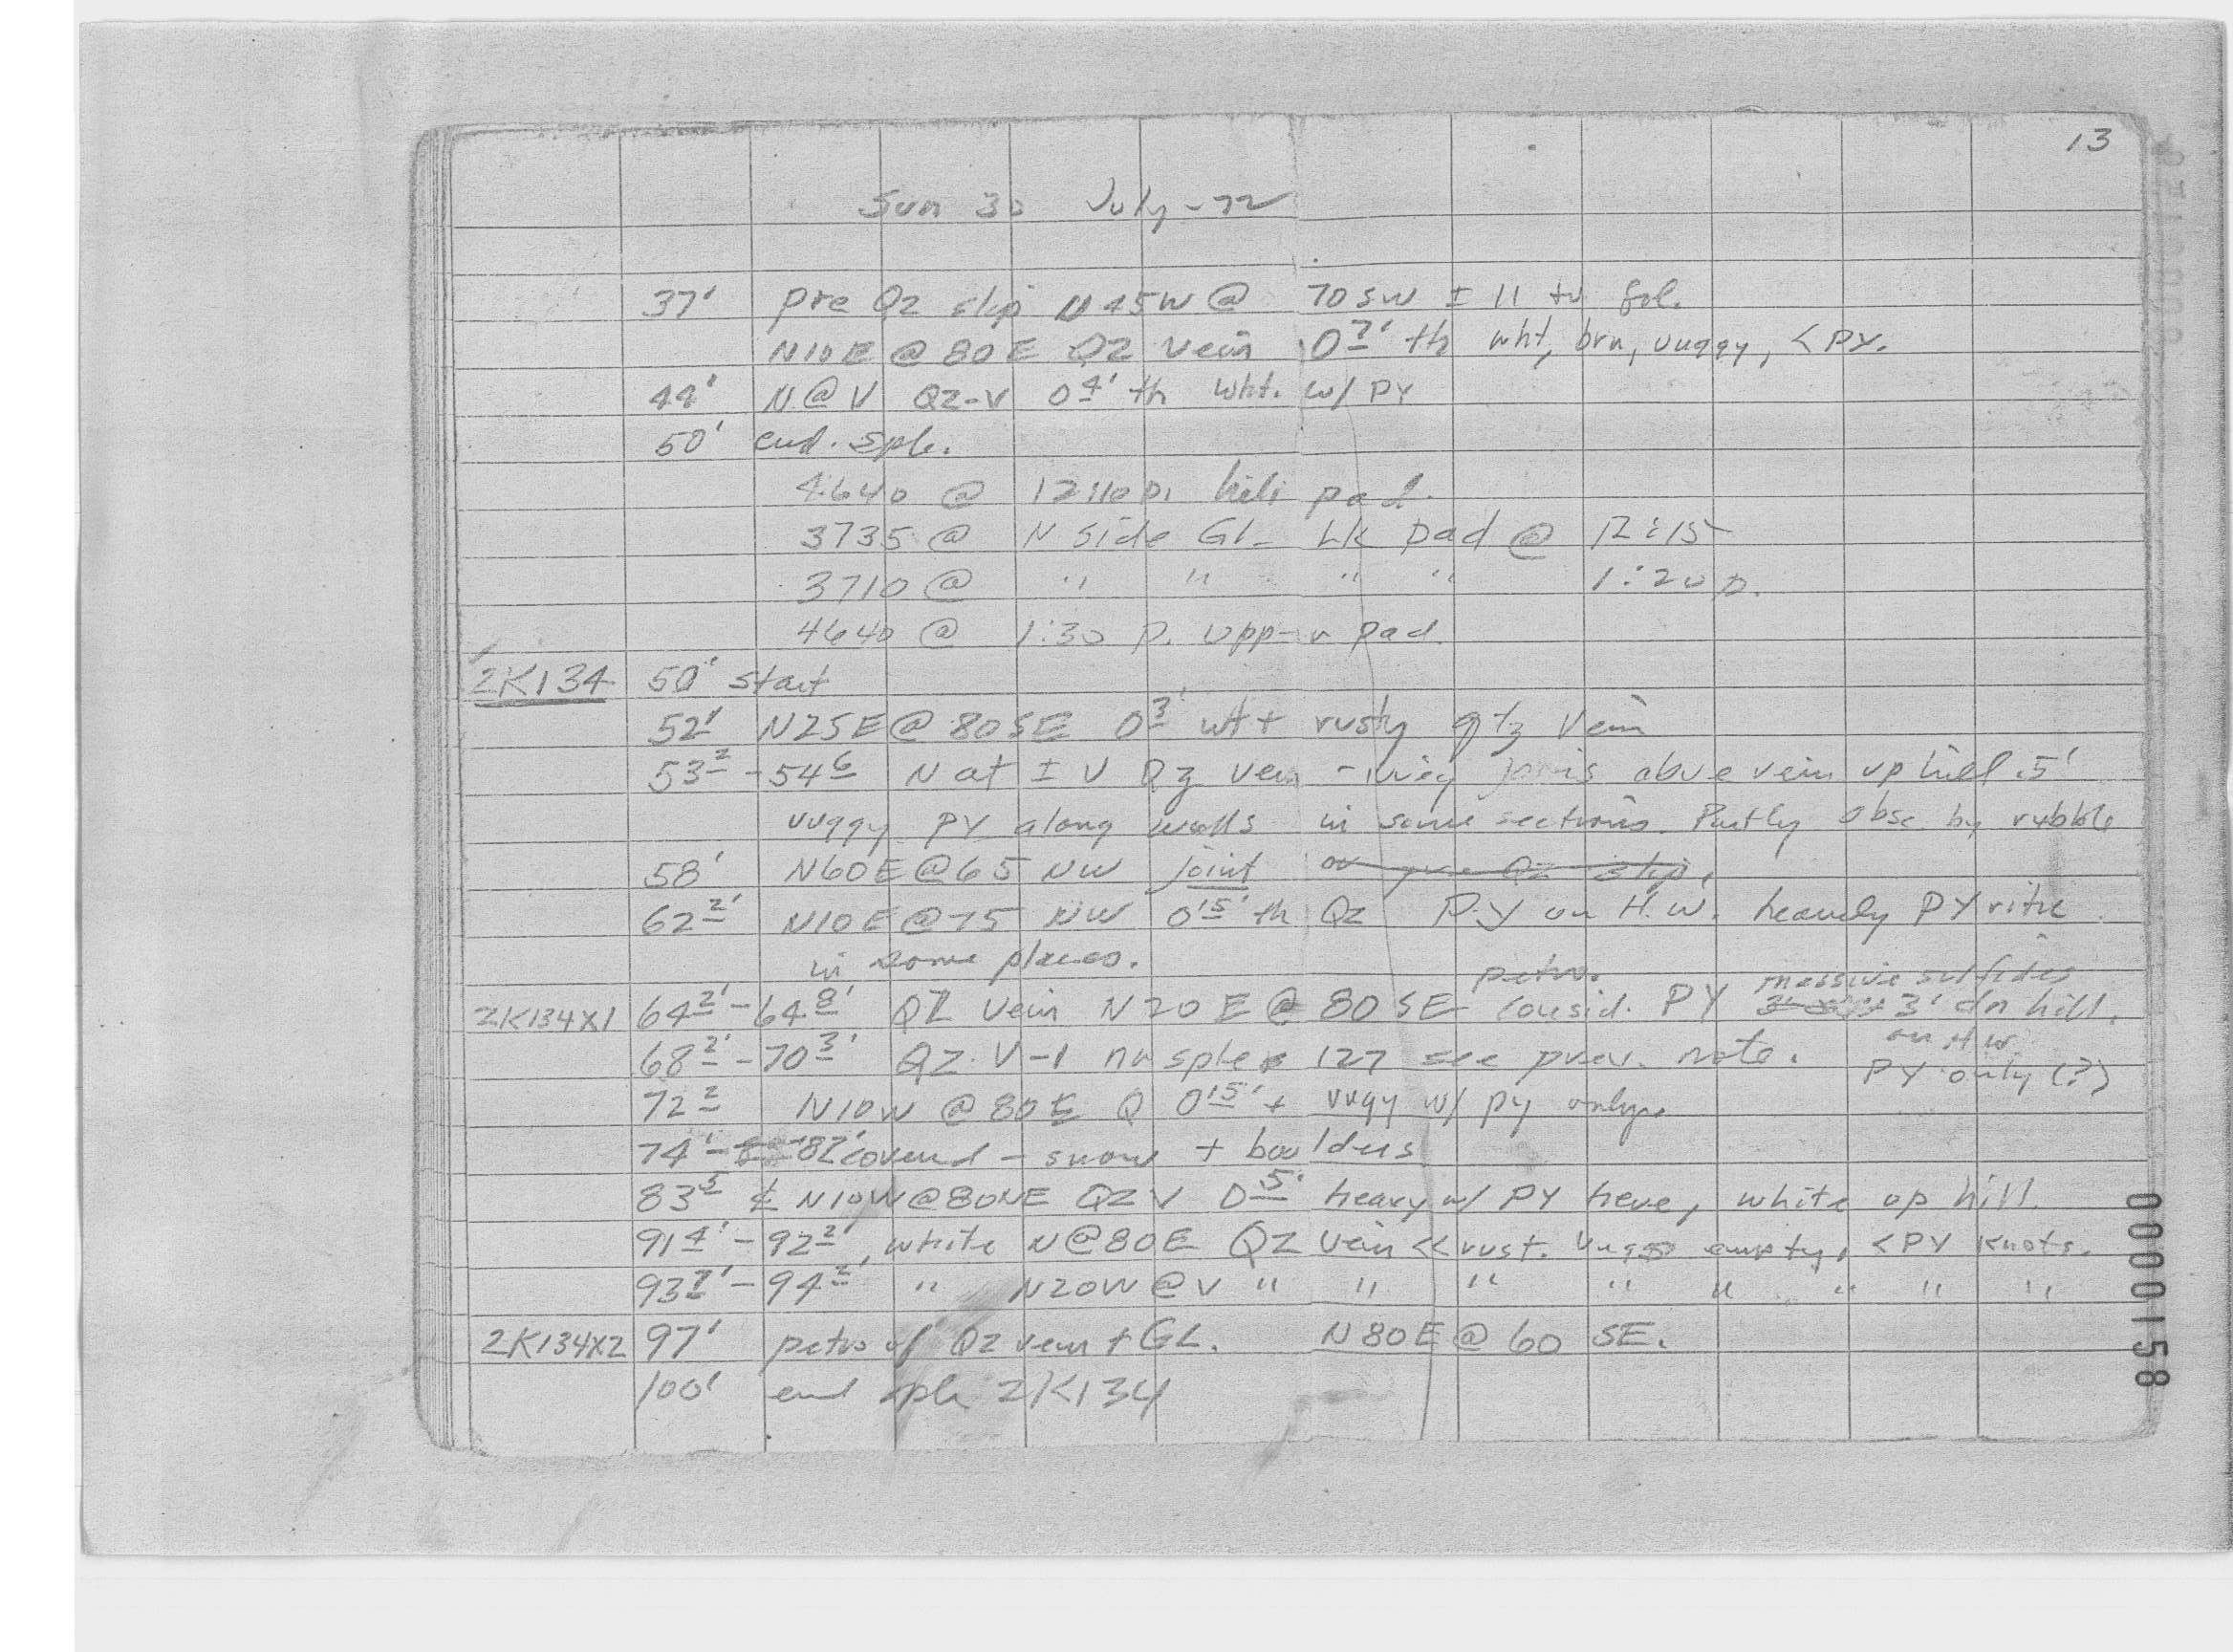 13
Sun 30 July-72
37' pre Qz slip N45W @ 70SW ± 11 to fol.
N10E @ 80E QZ vein 0 7' th wht, brn, vuggy, < PY.
44' N@V QZ-V 0 4' th wht. w/ PY
50' end. sple.
4640 @ 12:10 p. heli pad.
3735 @ N side GL LK pad @ 12:15
3710 @ " " " " 1:20 p.
4640 @ 1:30 p. upper pad.
2K134 50' start
52' N25E @ 80SE 0 3' wht rusty qtz vein
53 2 - 54 6 N at ± V Qz vein above vein up hill .5'
vuggy PY along walls in some sections. Partly obsc. by rubble
58' N60E @ 65 NW joint or pre Qz slip.
62 2' N10E @ 75 NW 0' 5' th Qz P.Y on H.W. heavily PYritic
in some places.
petro. massive sulfides
2K134X1 64 2' - 64 8' QZ vein N20E @ 80 SE consid. PY 3' dn hill.
on H.W.
68 2' - 70 3' QZ-V-1 nw sple 127 see prev. note. PY only (?)
72 2 N10W @ 80E Q 0' 5' + vugy w/ py only.
74' - 82' covered - snow + boulders
83 5 ₵ N10W @ 80NE QZV 0 5' heavy w/ PY here, white up hill.
91 4' - 92 2', white N@80E QZ vein << rust. Vugs empty, < PY knots.
93 7' - 94 2' " N20W @ V " " " " " " " "
2K134X2 97' petro of Qz vein + GL. N80E @ 60 SE.
100' end sple 2K134
0000158